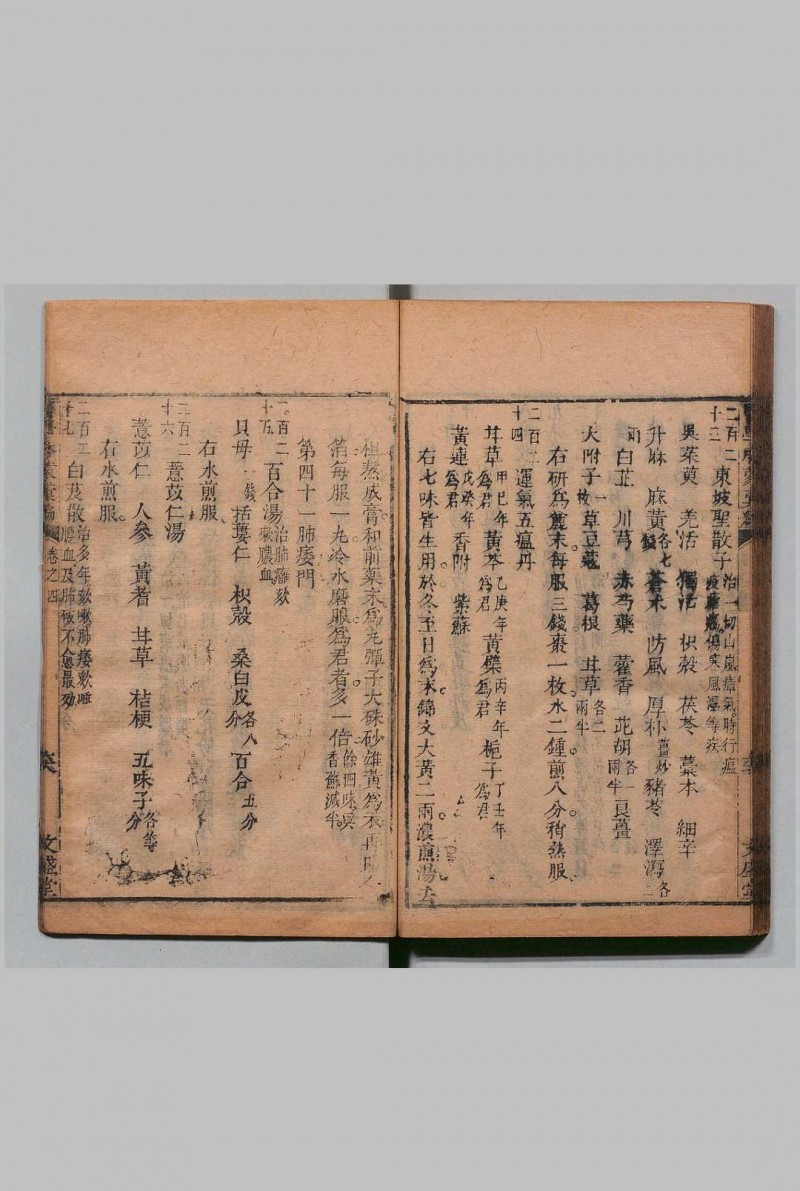 二百二十三 東坡聖散子 治一切山嵐瘴氣時行瘟疫傷寒風濕等疾
吳茱萸 羌活 獨活 枳殼 茯苓 藁本 細辛
升麻 麻黃各七錢 蒼朮 防風 厚朴薑炒 豬苓 澤瀉各二
兩 白芷 川芎 赤芍藥 藿香 茈胡各一兩半 良薑
大附子一枚 草豆蔻 葛根 甘草各二兩半
右研爲麄末每服三錢棗一枚水二鍾煎八分稍熱服
二百二十四 運氣五瘟丹
甘草甲巳年爲君 黃芩乙庚年爲君 黃檗丙辛年爲君 梔子丁壬年爲君
黃連戊癸年爲君 香附 紫蘇
右七味皆生用於冬至日爲末錦文大黃二兩濃煎湯去
粗熬成膏和前藥末爲丸彈子大硃砂雄黃爲衣再
箔每服一丸冷水磨服爲君者多一倍餘四味與香蘇減半
第四十一肺痿門
二百二十五 百合湯治肺癰欬嗽膿血
貝母一錢 栝蔞仁 枳殼 桑白皮各八分 百合五分
右水煎服
二百二十六 薏苡仁湯
薏苡仁 人參 黃耆 甘草 桔梗 五味子各等分
右水煎服
二百二十七 白芨散 治多年欬嗽肺痿欬唾膿血及肺破不愈最効
卷之四
文盛堂